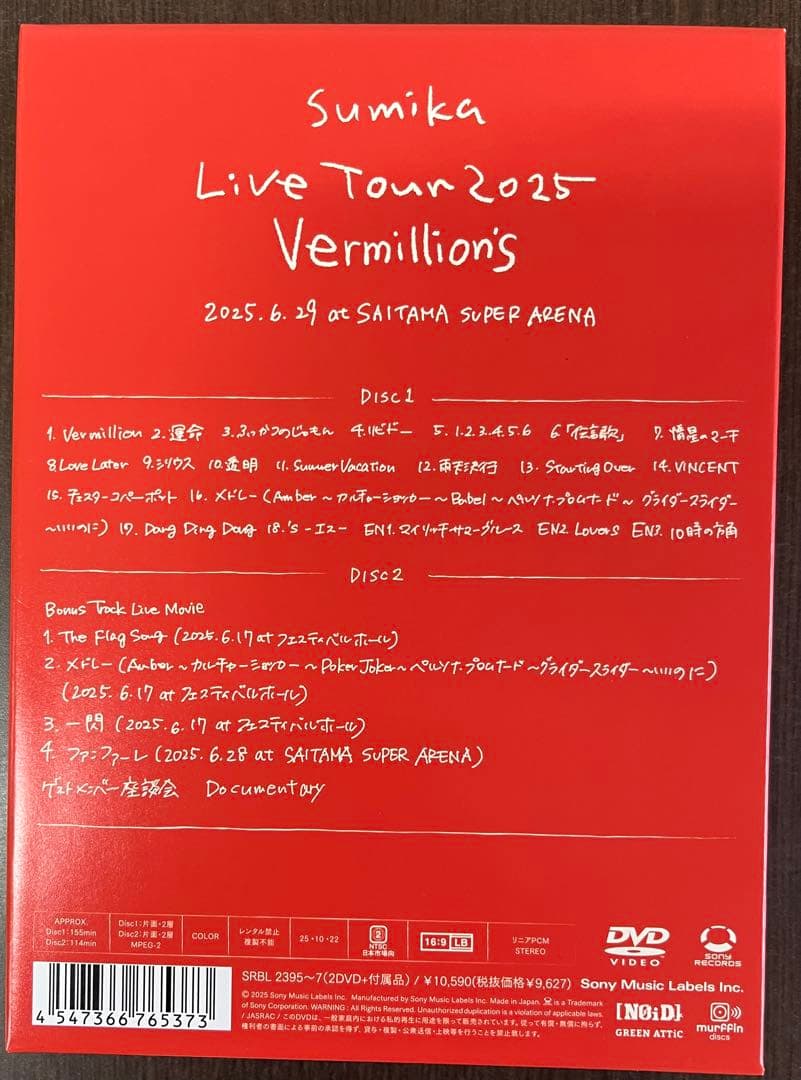 sumika
Live Tour 2025
Vermillion's
2025.6.29 at SAITAMA SUPER ARENA
Disc1
1. Vermillion 2. 運命 3. ふっかつのじゅもん 4. リビドー 5. 1.2.3..4.5.6 6.「伝言歌」 7. 惰星のマーチ
8. Love Later 9. シリウス 10. 透明 11. Summer Vacation 12. 雨天決行 13. Starting Over 14. VINCENT
15. チェスターコパーポット 16. メドレー(Amber～カルチャーショッカー～Babel～ペルソナ・プロムナード～グライダースライダー
～いいのに) 17. Dang Ding Dong 18. 's -エス- EN1. マイリッチサマーブルース EN2. Lovers EN3. 10時の方角
Disc2
Bonus Track Live Movie
1. The Flag Song (2025.6.17 at フェスティバルホール)
2. メドレー(Amber～カルチャーショッカー～Poker Joker～ペルソナ・プロムナード～グライダースライダー～いいのに)
(2025.6.17 at フェスティバルホール)
3. 一閃 (2025.6.17 at フェスティバルホール)
4. ファンファーレ (2025.6.28 at SAITAMA SUPER ARENA)
ゲストメンバー座談会 Documentary
APPROX. Disc1:155min Disc2:114min
Disc1:片面・2層 Disc2:片面・2層 MPEG-2
COLOR
レンタル禁止 複製不能
25・10・22
2 NTSC 日本市場向
16:9 LB
リニアPCM STEREO
DVD VIDEO
SONY RECORDS
SRBL 2395～7(2DVD+付属品) / ¥10,590(税抜価格¥9,627) Sony Music Labels Inc.
© 2025 Sony Music Labels Inc. Manufactured by Sony Music Labels Inc. Made in Japan. is a Trademark
of Sony Corporation. WARNING : All Rights Reserved. Unauthorized duplication is a violation of applicable laws.
/ JASRAC / このDVDは、一般家庭内における私的再生に用途を限って販売されています。従って有償・無償に拘らず、
権利者の書面による事前の承諾を得ず、貸与・複製・公衆送信・上映等を行うことを禁止致します。
4 547366 765373
[NOiD]
GREEN ATTiC
murffin
discs